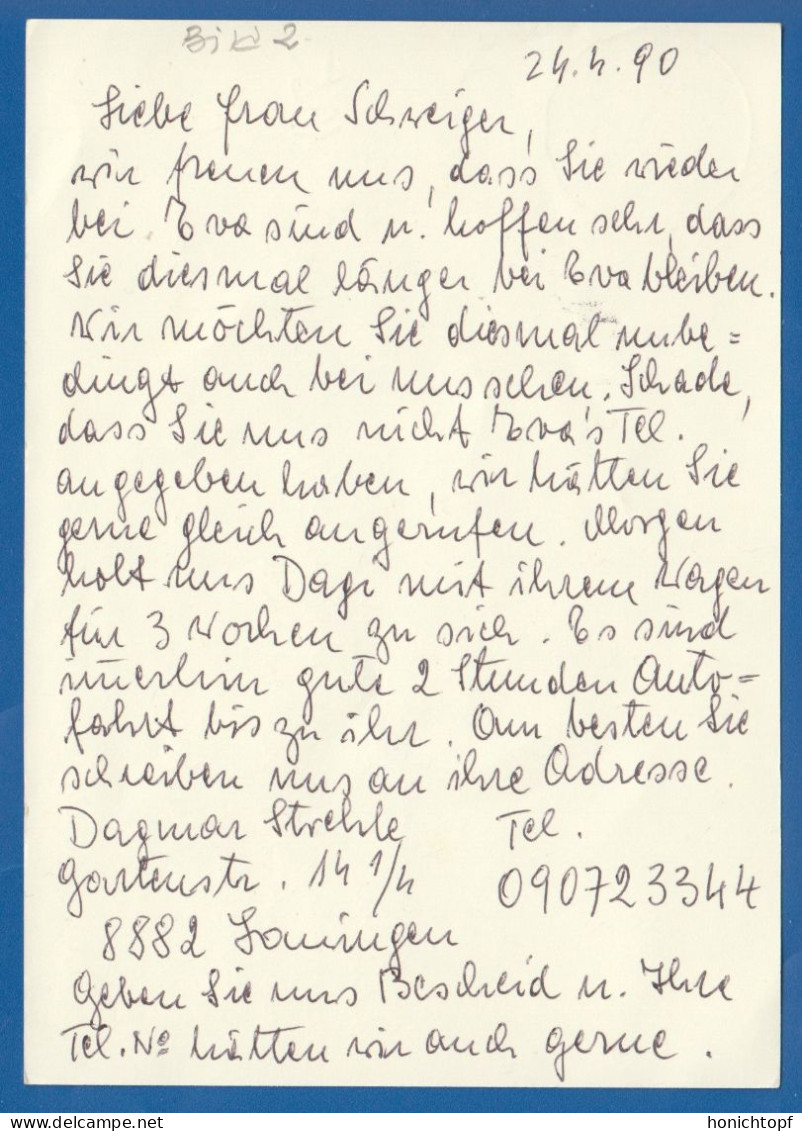 Bild 2
24.4.90
Liebe Frau Schweiger,
wir freuen uns, dass Sie wieder
bei Eva sind u. hoffen sehr, dass
Sie diesmal länger bei Eva bleiben.
Wir möchten Sie diesmal unbe=
dingt auch bei uns sehen. Schade,
dass Sie uns nicht Eva's Tel.
angegeben haben, wir hätten Sie
gerne gleich angerufen. Morgen
holt uns Dagi mit ihrem Wagen
für 3 Wochen zu sich. Es sind
imerhin gute 2 Stunden Auto=
fahrt bis zu ihr. Am besten Sie
schreiben uns an ihre Adresse.
Dagmar Strehle Tel.
Gartenstr. 14 1/4 090723344
8882 Lauingen
Geben Sie uns Bescheid u. Ihre
Tel. No hätten wir auch gerne.
honichtopf